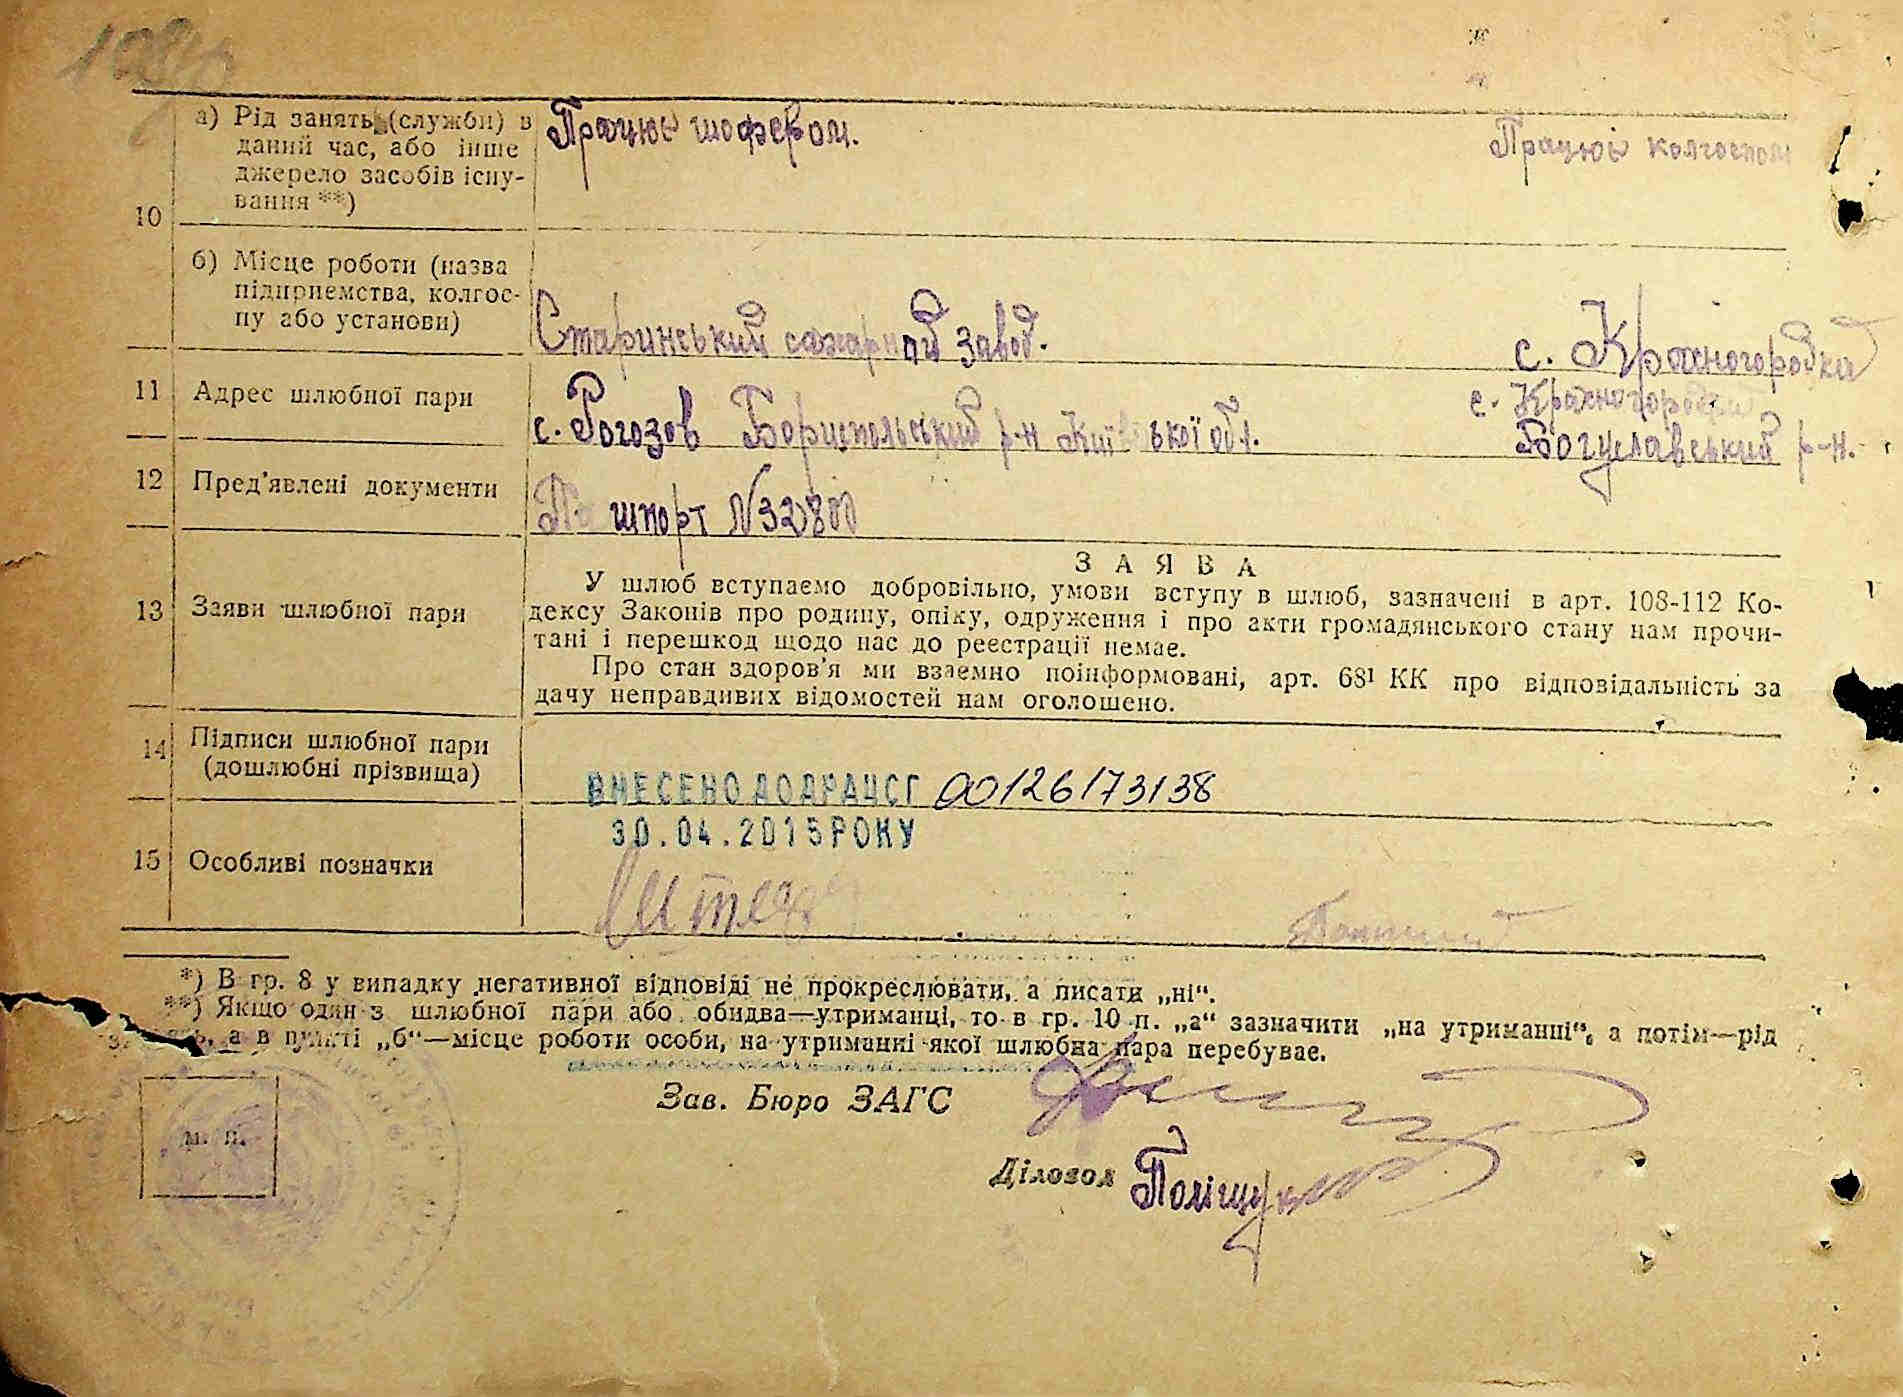 а) Рід занять (служби) в
даний час, або інше
джерело засобів існу-
вання **)
Працює шофером.
Працює колгоспом
10
б) Місце роботи (назва
підприємства, колгос-
пу або установи)
Старинський сахарний завод.
с. Крахногородка
11 Адрес шлюбної пари
с. Рогозов Бориспольський р-н Київської обл.
с. Крахногородка
Богуславський р-н.
12 Пред'явлені документи
Пашпорт N32800
13 Заяви шлюбної пари
ЗАЯВА
У шлюб вступаємо добровільно, умови вступу в шлюб, зазначені в арт. 108-112 Ко-
дексу Законів про родину, опіку, одруження і про акти громадянського стану нам прочи-
тані і перешкод щодо нас до реєстрації немає.
Про стан здоров'я ми взаємно поінформовані, арт. 68¹ КК про відповідальність за
дачу неправдивих відомостей нам оголошено.
14 Підписи шлюбної пари
(дошлюбні прізвища)
ВНЕСЕНО ДО ДРАЦСГ 00126173138
30.04.2015 РОКУ
15 Особливі позначки
*) В гр. 8 у випадку негативної відповіді не прокреслювати, а писати „ні“.
**) Якщо один з шлюбної пари або обидва—утриманці, то в гр. 10 п. „а“ зазначити „на утриманні“, а потім—рід
а в пункті „б“—місце роботи особи, на утриманні якої шлюбна пара перебуває.
Зав. Бюро ЗАГС
м. п.
Діловод Поліщук